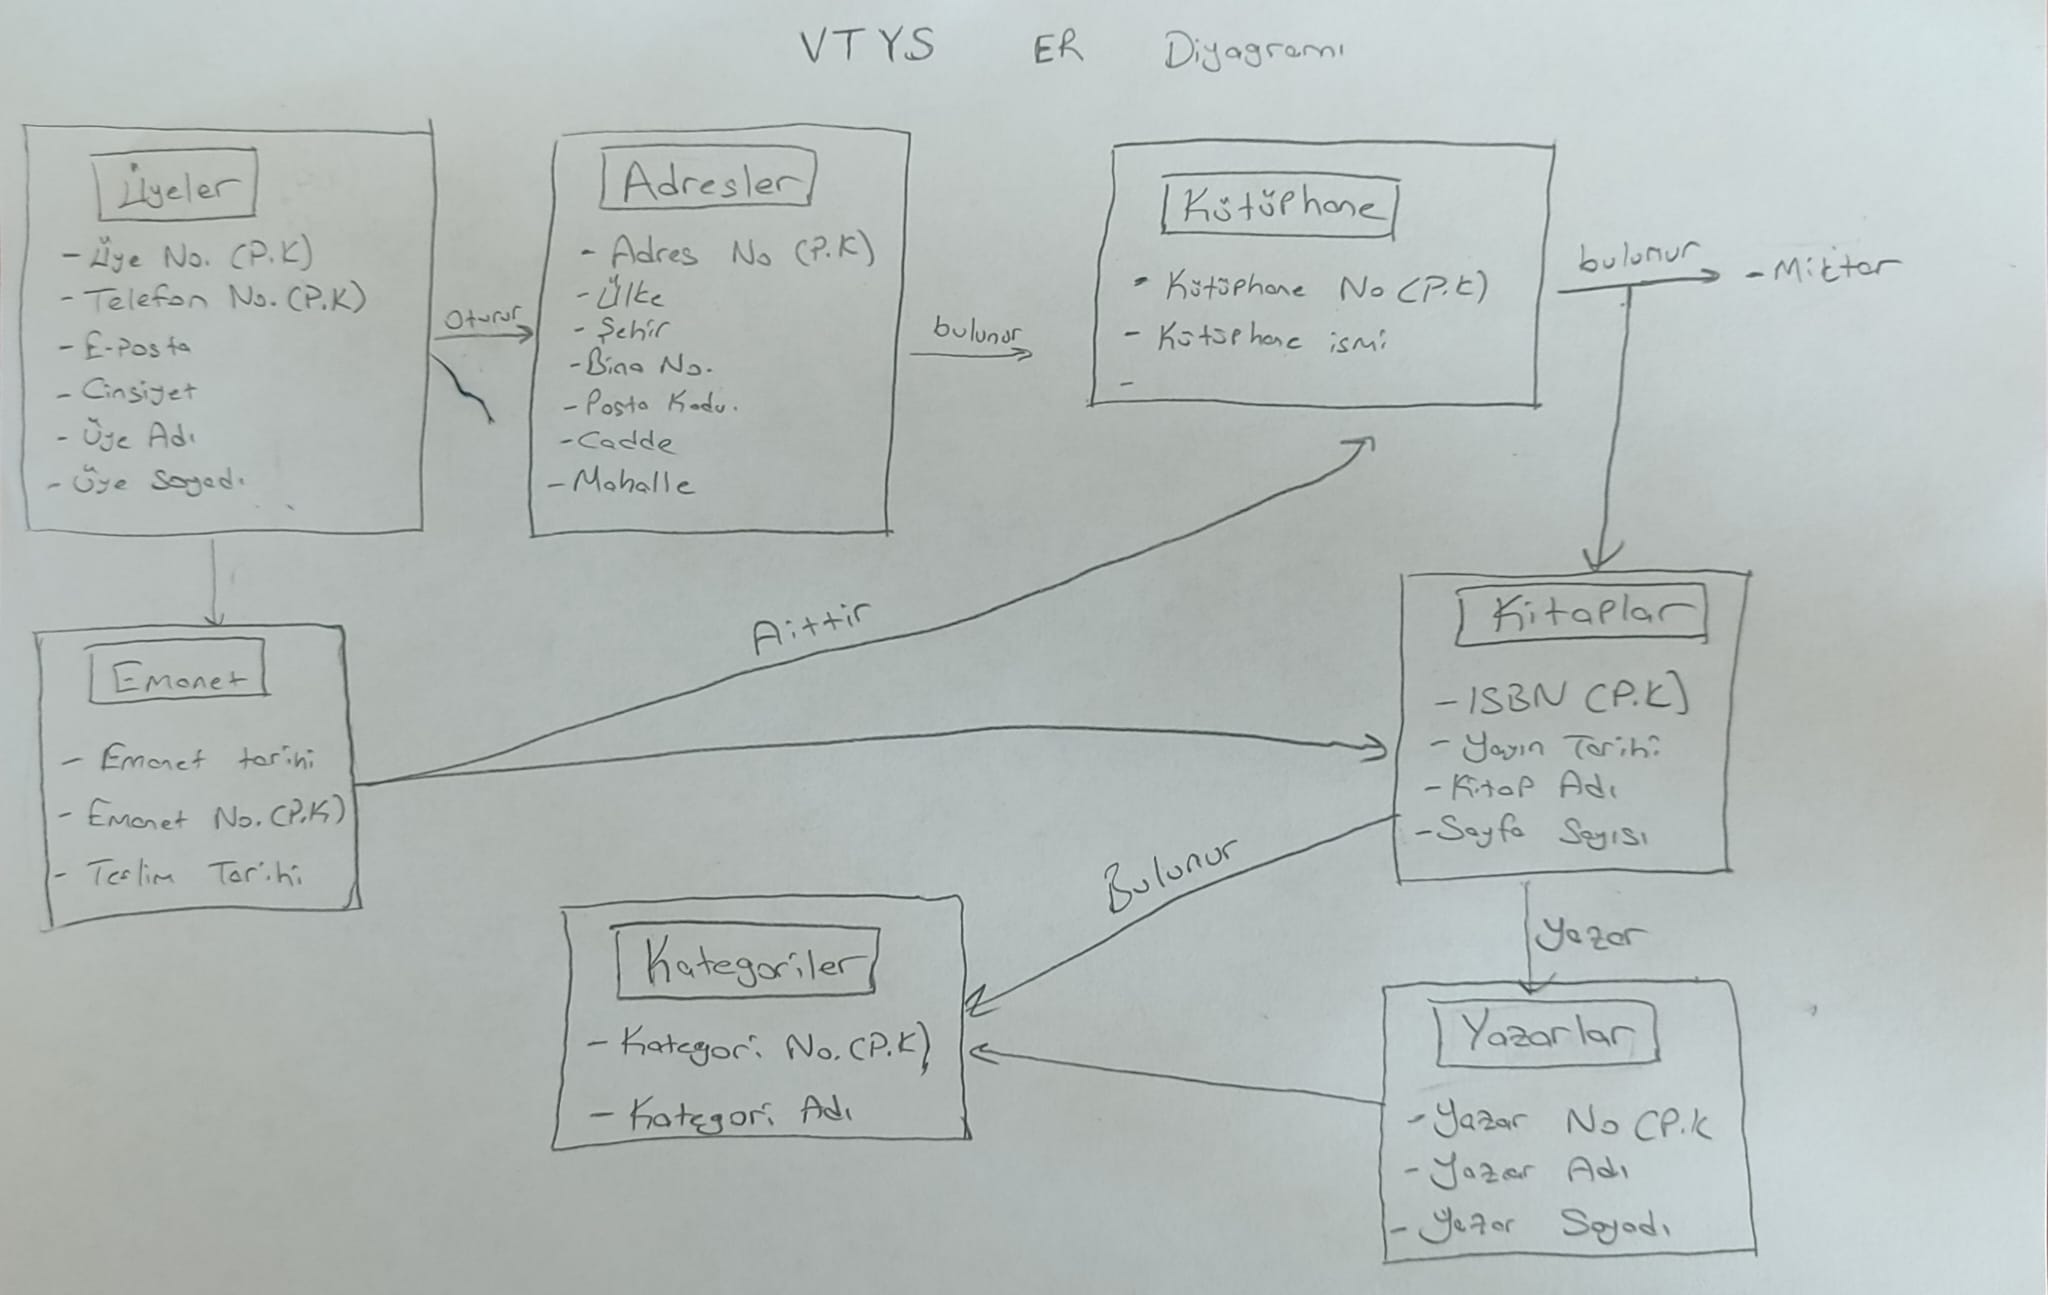 VTYS ER Diyagramı
Üyeler
- Üye No. (P.K)
- Telefon No. (P.K)
- E-Posta
- Cinsiyet
- Üye Adı
- Üye Soyadı
Oturur
Adresler
- Adres No (P.K)
- Ülke
- Şehir
- Bina No.
- Posta Kodu.
- Cadde
- Mahalle
bulunur
Kütüphane
- Kütüphane No (P.K)
- Kütüphane ismi
-
bulunur
- Miktar
Emanet
- Emanet tarihi
- Emanet No. (P.K)
- Teslim Tarihi
Aittir
Kitaplar
- ISBN (P.K)
- Yayın Tarihi
- Kitap Adı
- Sayfa Sayısı
Bulunur
Yazar
Kategoriler
- Kategori No. (P.K)
- Kategori Adı
Yazarlar
- Yazar No (P.K
- Yazar Adı
- Yazar Soyadı